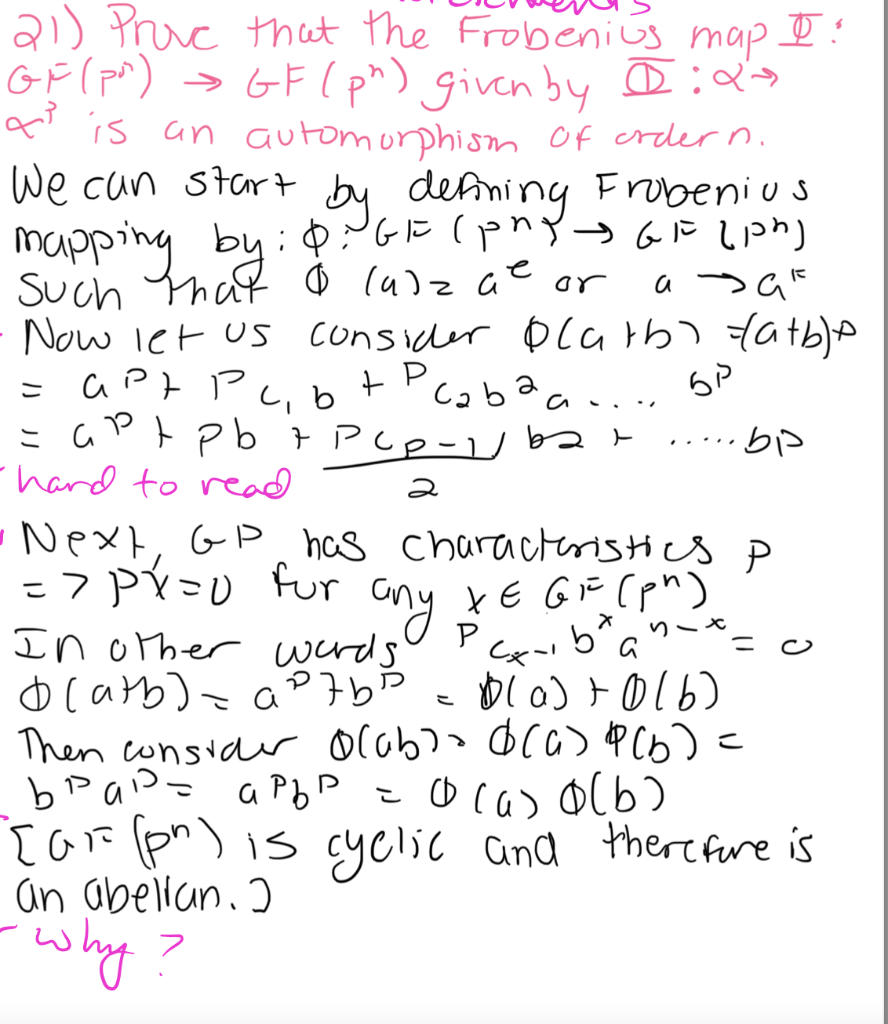 21) Prove that the Frobenius map Φ:
GF(pⁿ) → GF(pⁿ) given by Φ : α→
αᵖ is an automorphism of order n.
We can start by defining Frobenius
mapping by: φ: GF (pⁿ) → GF (pⁿ)
Such that φ (a) = aᵖ or a → aᵖ
Now let us consider φ(a+b) = (a+b)ᵖ
= aᵖ + ᵖc₁ b + ᵖc₂b²a..... bᵖ
= aᵖ + pb + p(p-1)/2 b2 + ......bp
hard to read
Next, GP has characteristics p
=> px=0 for any x ∈ GF(pⁿ)
In other words ᵖcₓ₋₁ bˣ aⁿ⁻ˣ = 0
φ(a+b) = aᵖ+bᵖ = φ(a) + φ(b)
Then consider φ(ab) = φ(a) φ(b) =
bᵖaᵖ = aᵖbᵖ = φ(a) φ(b)
[GF(pⁿ) is cyclic and therefore is
an abelian.]
why?